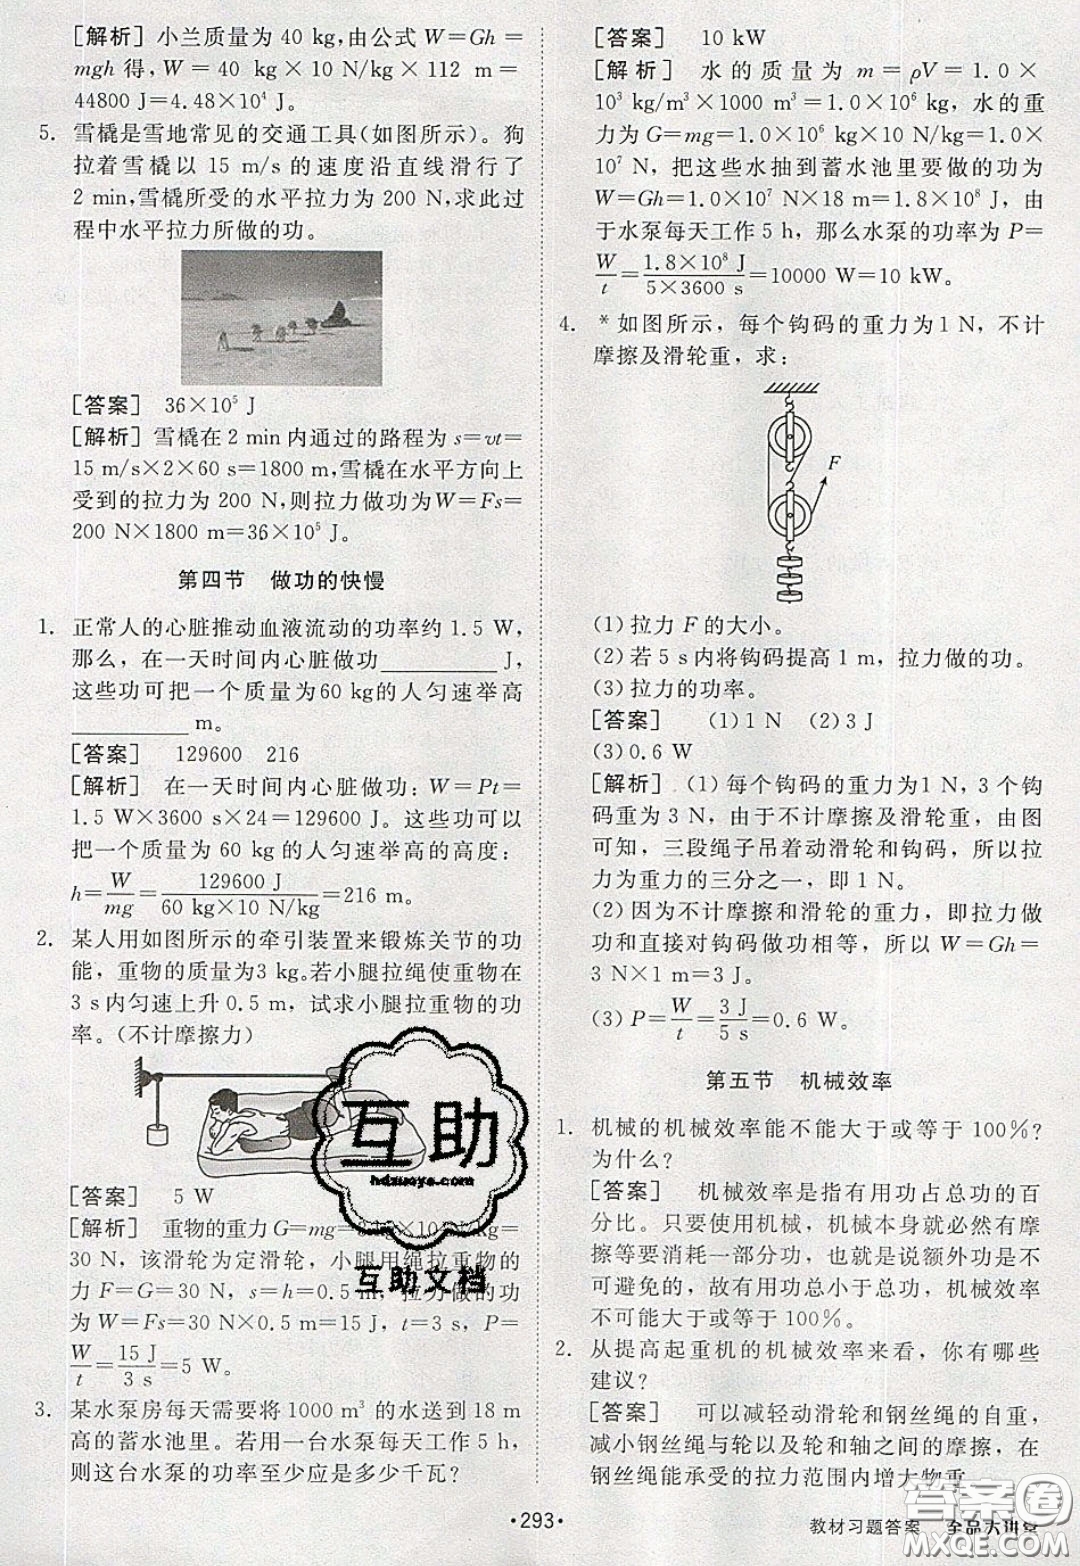 [解析] 小兰质量为 40 kg,由公式 W=Gh=
mgh 得, W = 40 kg × 10 N/kg × 112 m =
44800 J=4.48×10⁴ J。
5. 雪橇是雪地常见的交通工具(如图所示)。狗
拉着雪橇以 15 m/s 的速度沿直线滑行了
2 min,雪橇所受的水平拉力为 200 N,求此过
程中水平拉力所做的功。
[答案] 36×10⁵ J
[解析] 雪橇在 2 min 内通过的路程为 s=vt=
15 m/s×2×60 s=1800 m,雪橇在水平方向上
受到的拉力为 200 N,则拉力做功为W=Fs=
200 N×1800 m=36×10⁵ J。
第四节 做功的快慢
1. 正常人的心脏推动血液流动的功率约 1.5 W,
那么,在一天时间内心脏做功__________J,
这些功可把一个质量为60 kg的人匀速举高
__________ m。
[答案] 129600 216
[解析] 在一天时间内心脏做功: W=Pt=
1.5 W×3600 s×24=129600 J。这些功可以
把一个质量为 60 kg 的人匀速举高的高度:
h=W/mg=129600 J/60 kg×10 N/kg=216 m。
2. 某人用如图所示的牵引装置来锻炼关节的功
能,重物的质量为3 kg。若小腿拉绳使重物在
3 s内匀速上升0.5 m,试求小腿拉重物的功
率。(不计摩擦力)
[答案] 5 W
[解析] 重物的重力 G=mg=3 kg×10 N/kg=
30 N,该滑轮为定滑轮,小腿用绳拉重物的
力 F=G=30 N,s=h=0.5 m,拉力做的功
为 W=Fs=30 N×0.5 m=15 J,t=3 s,P=
W/t=15 J/3 s=5 W。
3. 某水泵房每天需要将 1000 m³ 的水送到 18 m
高的蓄水池里。若用一台水泵每天工作 5 h,
则这台水泵的功率至少应是多少千瓦?
[答案] 10 kW
[解析] 水的质量为 m=ρV=1.0×
10³ kg/m³×1000 m³=1.0×10⁶ kg,水的重
力为 G=mg=1.0×10⁶ kg×10 N/kg=1.0×
10⁷ N,把这些水抽到蓄水池里要做的功为
W=Gh=1.0×10⁷ N×18 m=1.8×10⁸ J,由
于水泵每天工作 5 h,那么水泵的功率为 P=
W/t=1.8×10⁸ J/5×3600 s=10000 W=10 kW。
4. *如图所示,每个钩码的重力为1 N,不计
摩擦及滑轮重,求:
F
(1)拉力 F 的大小。
(2)若 5 s内将钩码提高 1 m,拉力做的功。
(3)拉力的功率。
[答案] (1)1 N (2)3 J
(3)0.6 W
[解析] (1)每个钩码的重力为1 N,3 个钩
码重为 3 N,由于不计摩擦及滑轮重,由图
可知,三段绳子吊着动滑轮和钩码,所以拉
力为重力的三分之一,即 1 N。
(2)因为不计摩擦和滑轮的重力,即拉力做
功和直接对钩码做功相等,所以 W=Gh=
3 N×1 m=3 J。
(3)P=W/t=3 J/5 s=0.6 W。
第五节 机械效率
1. 机械的机械效率能不能大于或等于 100%?
为什么?
[答案] 机械效率是指有用功占总功的百
分比。只要使用机械,机械本身就必然有摩
擦等要消耗一部分功,也就是说额外功是不
可避免的,故有用功总小于总功,机械效率
不可能大于或等于 100%。
2. 从提高起重机的机械效率来看,你有哪些
建议?
[答案] 可以减轻动滑轮和钢丝绳的自重,
减小钢丝绳与轮以及轮和轴之间的摩擦,在
钢丝绳能承受的拉力范围内增大物重。
互助
hdzuoye.com
互助文档
•293•
教材习题答案 全品大讲堂
答案圈
MXQE.COM